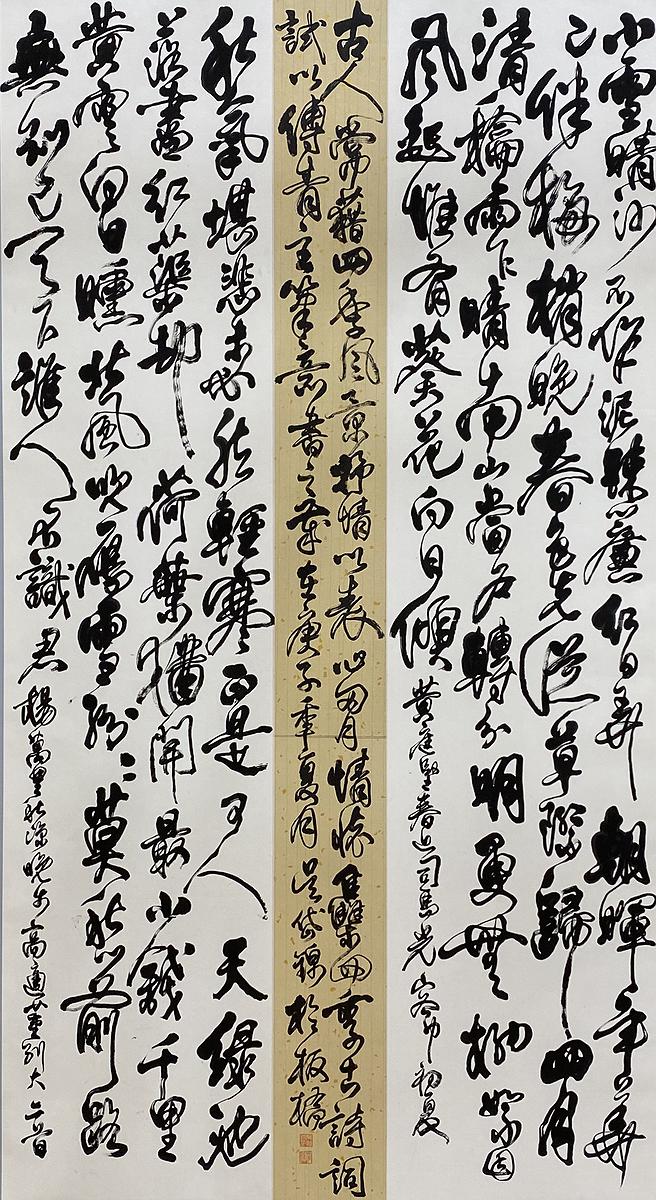 小雪晴沙不作泥疎簾紅日弄朝暉年華
已伴梅梢晚春色先從草際歸四月
清和雨乍晴南山當戶轉分明更無柳絮因
風起惟有葵花向日傾 黃庭堅春近 司馬光客中初夏
古人常藉四季風景抒情以表心 情懷集四季古詩詞
試以傅青主筆意書之歲在庚子季夏月吳岱錦於板橋
秋氣堪悲未必然輕寒正是可人天綠池
落盡紅蕖卻荷葉猶開最小錢千里
黃雲白日曛北風吹雁雪紛紛莫愁前路
無知己天下誰人不識君 楊萬里秋涼晚步 高適董別大二首